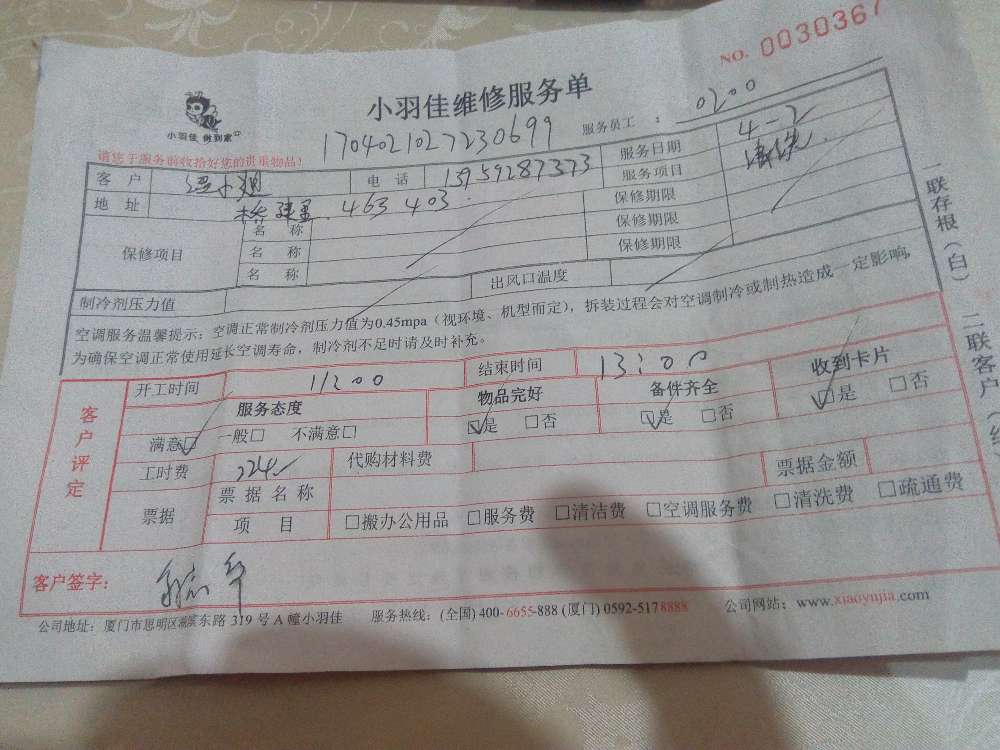 NO. 0030367
小羽佳维修服务单
小羽佳 做到家
170402102723069 9
服务员工 : 0200
请您于服务前收拾好您的贵重物品!
客 户 电 话 15959287373 服务日期 4-2
地 址 463 403 服务项目 清洗
保修项目 名 称 保修期限
名 称 保修期限
名 称 保修期限
制冷剂压力值 出风口温度
空调服务温馨提示：空调正常制冷剂压力值为0.45mpa（视环境、机型而定），拆装过程会对空调制冷或制热造成一定影响，
为确保空调正常使用延长空调寿命，制冷剂不足时请及时补充。
客户评定 开工时间 11:00 结束时间 13:00
服务态度 物品完好 备件齐全 收到卡片
满意□ 一般□ 不满意□ □是 □否 □是 □否 □是 □否
工时费 224 代购材料费
票据 票据名称 票据金额
项 目 □搬办公用品 □服务费 □清洁费 □空调服务费 □清洗费 □疏通费
客户签字:
公司地址：厦门市思明区湖滨东路 319 号 A 幢小羽佳 服务热线：(全国) 400-6655-888 (厦门) 0592-5178888 公司网站：www.xiaoyujia.com
一联存根（白） 二联客户